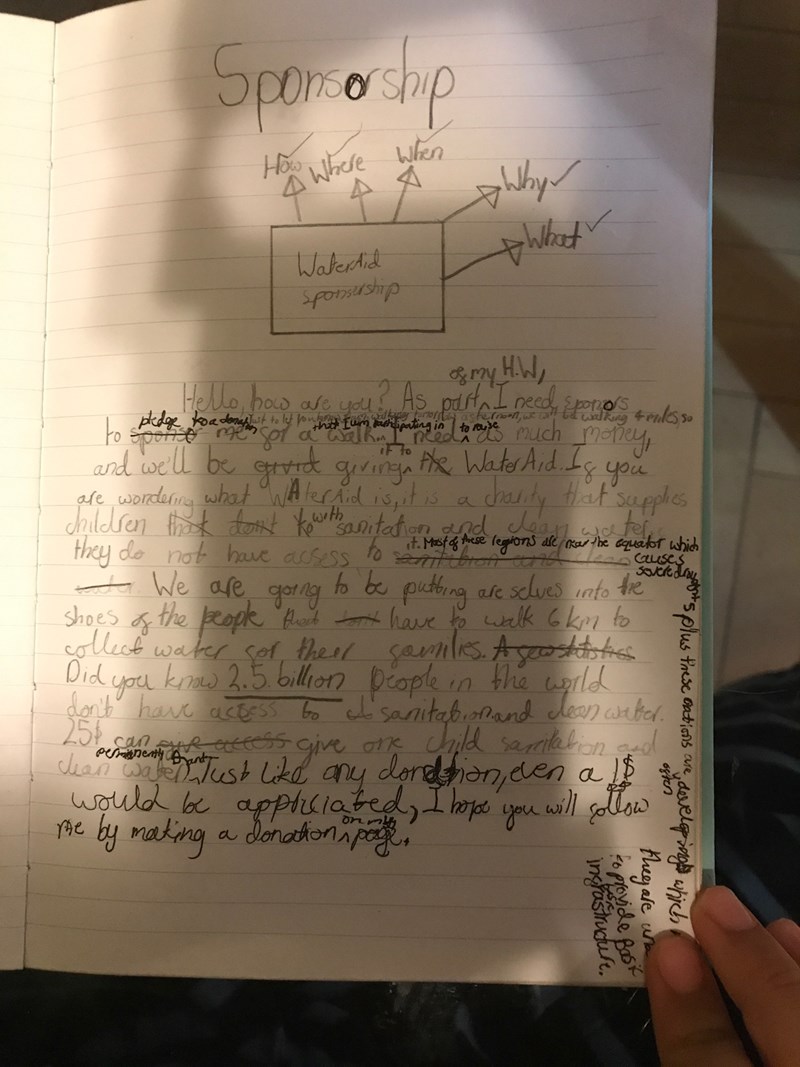 Sponsorship
How Where When
Why
What
WaterAid
sponsership
of my H.W,
Hello, how are you? As part I need sponors
we will be walking 4 miles, so
pledge to a donation that I am participating in to raise
to sponse me for a walk. I need as much money,
it to
and we'll be givid giving the WaterAid. If you
are wondering what WAterAid is, it is a charity that supplies
children that dont to with sanitation and clean water,
it. Most of these regions are near the equator which
they do not have access to sanitation and clean causes
severe droughts plus these nations are often developing which
they are
to provide
infrastucture.
water. We are going to be putting are selves into the
shoes of the people that don't have to walk 6 km to
collect water for their families. A few statistics
Did you know 2.5. billion people in the world
don't have access to sanitation and clean water.
25$ can give access give one child sanitation and
permanently
clean water. Just like any donation, even a 1$
would be appriciated, I hope you will follow
on my
me by making a donation page.